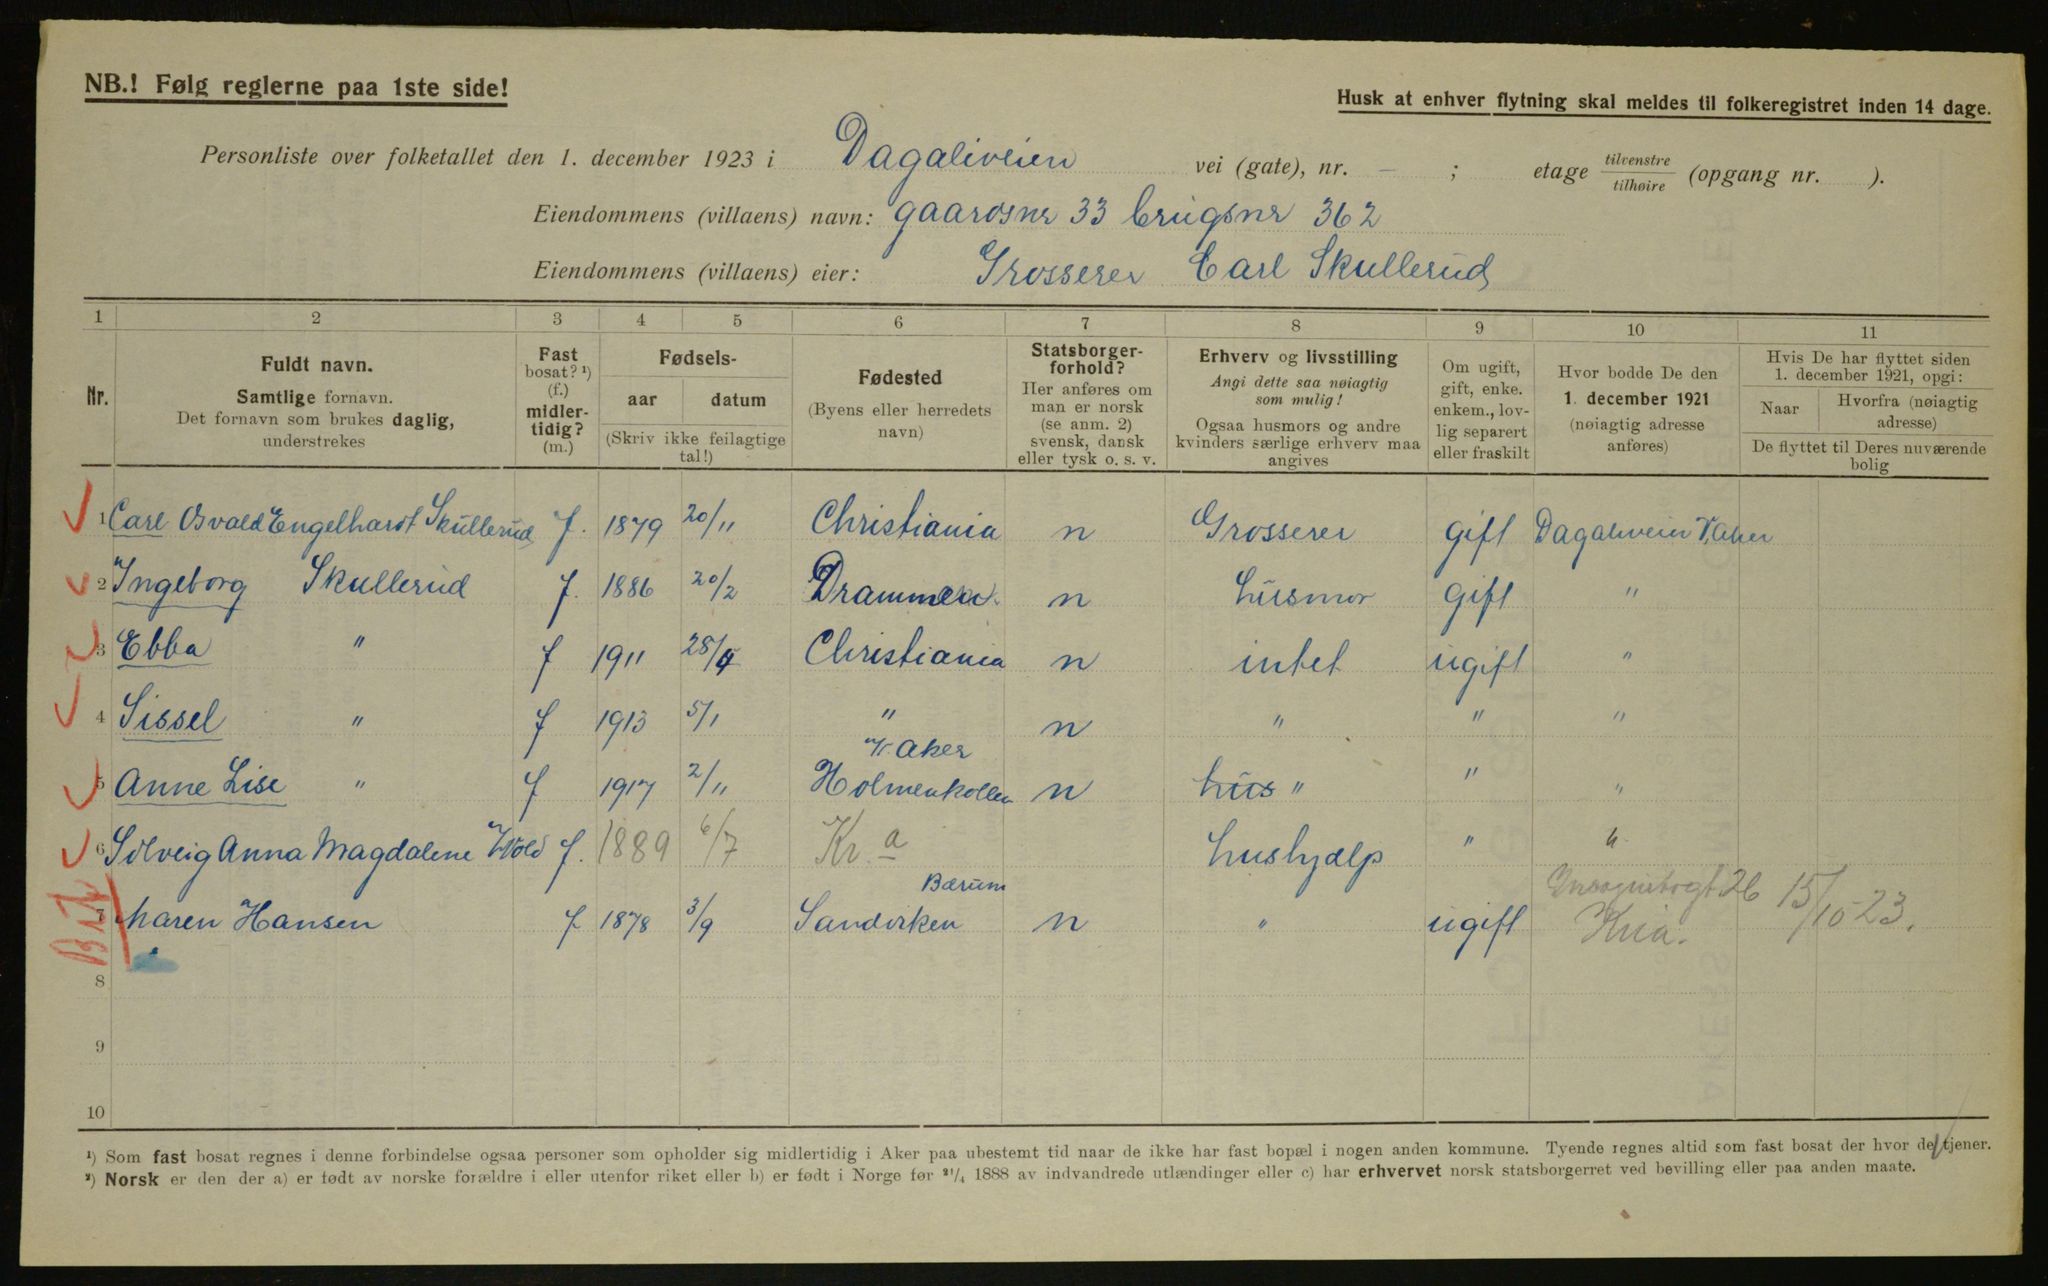 NB.! Følg reglerne paa 1ste side!
Husk at enhver flytning skal meldes til folkeregistret inden 14 dage.
Personliste over folketallet den 1. december 1923 i Dagaliveien vei (gate), nr. – ; etage tilvenstre / tilhøire (opgang nr. ).
Eiendommens (villaens) navn: gaardsnr 33 brugsnr 362
Eiendommens (villaens) eier: Grosserer Carl Skullerud
1 2 3 4 5 6 7 8 9 10 11
Nr.
Fuldt navn.
Samtlige fornavn.
Det fornavn som brukes daglig,
understrekes
Fast
bosat? ¹)
(f.)
midler-
tidig?
(m.)
Fødsels-
aar datum
(Skriv ikke feilagtige
tal!)
Fødested
(Byens eller herredets
navn)
Statsborger-
forhold?
Her anføres om
man er norsk
(se anm. 2)
svensk, dansk
eller tysk o. s. v.
Erhverv og livsstilling
Angi dette saa nøiagtig
som mulig!
Ogsaa husmors og andre
kvinders særlige erhverv maa
angives
Om ugift,
gift, enke.
enkem., lov-
lig separert
eller fraskilt
Hvor bodde De den
1. december 1921
(nøiagtig adresse
anføres)
Hvis De har flyttet siden
1. december 1921, opgi:
Naar
Hvorfra (nøiagtig
adresse)
De flyttet til Deres nuværende
bolig
1 Carl Osvald Engelhardt Skullerud f. 1879 20/11 Christiania n Grosserer gift Dagaliveien V. Aker
2 Ingeborg Skullerud f. 1886 20/2 Drammen n husmor gift "
3 Ebba " f 1911 28/4 Christiania n intet ugift "
4 Sissel " f 1913 5/1 " n " " "
V. Aker
5 Anne Lise " f 1917 2/11 Holmenkollen n hus " " "
6 Solveig Anna Magdalene Wold f. 1889 6/7 Kr.a hushjælp " "
Bærum
7 Maren Hansen f 1878 3/9 Sandviken n " ugift Kria. 15/10-23.
8
9
10
¹) Som fast bosat regnes i denne forbindelse ogsaa personer som opholder sig midlertidig i Aker paa ubestemt tid naar de ikke har fast bopæl i nogen anden kommune. Tyende regnes altid som fast bosat der hvor de tjener.
²) Norsk er den der a) er født av norske forældre i eller utenfor riket eller b) er født i Norge før ²¹/₄ 1888 av indvandrede utlændinger eller c) har erhvervet norsk statsborgerret ved bevilling eller paa anden maate.